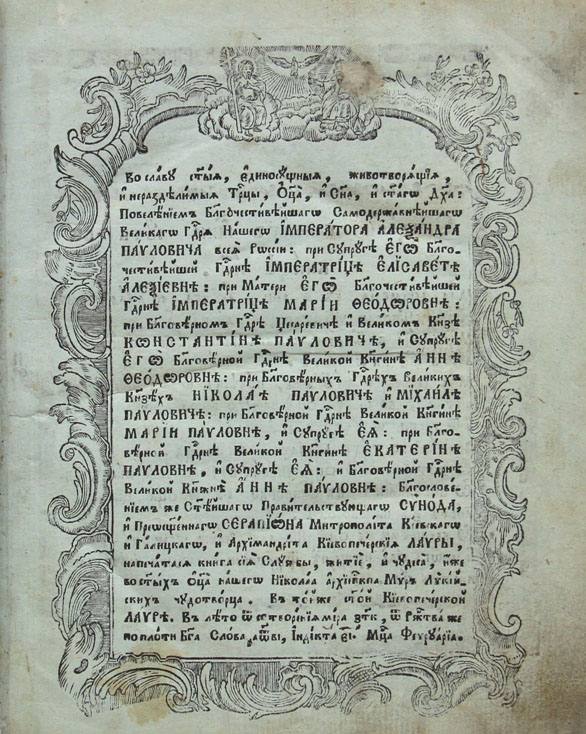 Во славу ст҃ыѧ, є҆диносꙋщныѧ, животворѧщїѧ,
и҆ нераздѣлимыѧ Трⷪ҇цы, Ѻ҆ц҃а, и҆ Сн҃а, и҆ ст҃агѡ Дх҃а:
Повелѣнїемъ Бл҃гочестивѣйшагѡ Самодержавнѣйшагѡ
Великагѡ Гдⷭ҇рѧ Нашегѡ І҆МПЕРАТОРА АЛЕѮАНДРА
ПАѴЛОВИЧА всеѧ Рѡссїи: при Сꙋпрꙋгѣ Є҆ГѠ̀ Бл҃го-
честивѣйшей Гдⷭ҇рнѣ І҆МПЕРАТРИЦѢ Е҆ЛІСАВЕТѢ
АЛЕѮІЕВНѢ: при Матери Є҆ГѠ̀ Бл҃гочестивѣйшей
Гдⷭ҇рнѣ І҆МПЕРАТРИЦѢ МАРІИ ѲЕѠДѠРОВНѢ:
при Бл҃говѣрномъ Гдⷭ҇рѣ Цесаревичѣ и҆ Великомъ Кн҃зѣ
КѠНСТАНТІНѢ ПАѴЛОВИЧѢ, и҆ Сꙋпрꙋгѣ
Є҆ГѠ̀ Бл҃говѣрной Гдⷭ҇рнѣ Великой Кнѧгинѣ А҆ННѢ
ѲЕѠДѠРОВНѢ: при Бл҃говѣрныхъ Гдⷭ҇рѣхъ Великихъ
Кн҃зѣхъ НІКОЛАѢ ПАѴЛОВИЧѢ и҆ МІХАИЛѢ
ПАѴЛОВИЧѢ: при Бл҃говѣрной Гдⷭ҇рнѣ Великой Кнѧгинѣ
МАРІИ ПАѴЛОВНѢ, и҆ Сꙋпрꙋгѣ Є҆Ѧ̀: при Бл҃го-
вѣрной Гдⷭ҇рнѣ Великой Кнѧгинѣ Е҆КАТЕРІНѢ
ПАѴЛОВНѢ, и҆ Сꙋпрꙋгѣ Є҆Ѧ̀: и҆ Бл҃говѣрной Гдⷭ҇рнѣ
Великой Кнѧжнѣ А҆ННѢ ПАѴЛОВНѢ: Бл҃гослове-
нїемъ же Ст҃ѣйшагѡ Правительствꙋющагѡ СѴНОДА,
и҆ Преѡсщ҃еннагѡ СЕРАПІѠНА Митрополіта Кїевскагѡ
и҆ Галицкагѡ, и҆ А҆рхїмандрїта Кїевопечерскїѧ ЛАѴРЫ,
напечатасѧ книга сїѧ̀ Слꙋжбы, житїе, и҆ чꙋдеса̀, и҆же
во ст҃ыхъ Ѻ҆ц҃а нашегѡ Нїкола́а А҆рхїепⷭ҇кпа Мѵръ Лѷкїй-
скихъ чꙋдотворца. Въ то́йже ст҃ой Кїевопечерской
ЛАѴРѢ. Въ лѣто ѿ сотворенїѧ мїра ҂зтк, ѿ Ржⷭ҇тва же
по плоти Бг҃а Слова ҂аѡві, І҆ндікта еі: Мцⷭ҇а Феврꙋарїа.